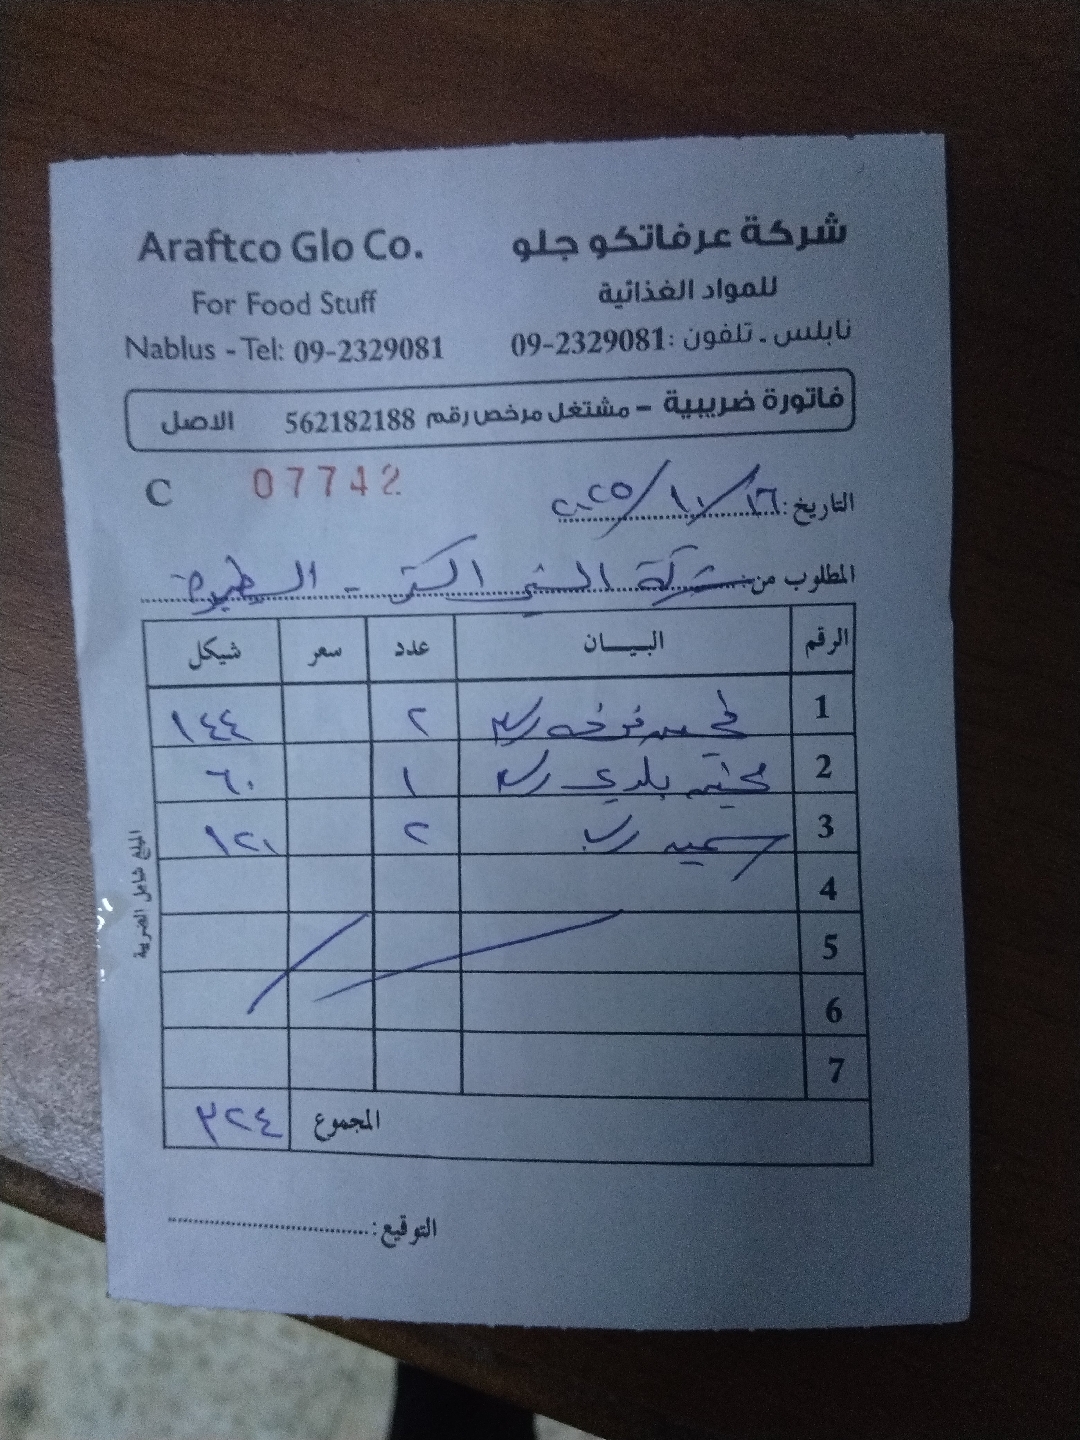 Araftco Glo Co. شركة عرفاتكو جلو
For Food Stuff للمواد الغذائية
Nablus - Tel: 09-2329081 نابلس - تلفون: 09-2329081
فاتورة ضريبية - مشتغل مرخص رقم 562182188 الاصل
C 07742
التاريخ: ١٦/١٠/٢٠٢٥
المطلوب من شركة السني اكسترا - الطيرة
الرقم البيـــان عدد سعر شيكل
1 ٢ ١٤٤
2 بلدي ١ ٦٠
3 ٢ ١٢٠
4
5
6
7
المجموع ٣٢٤
المبلغ شامل الضريبة
التوقيع: